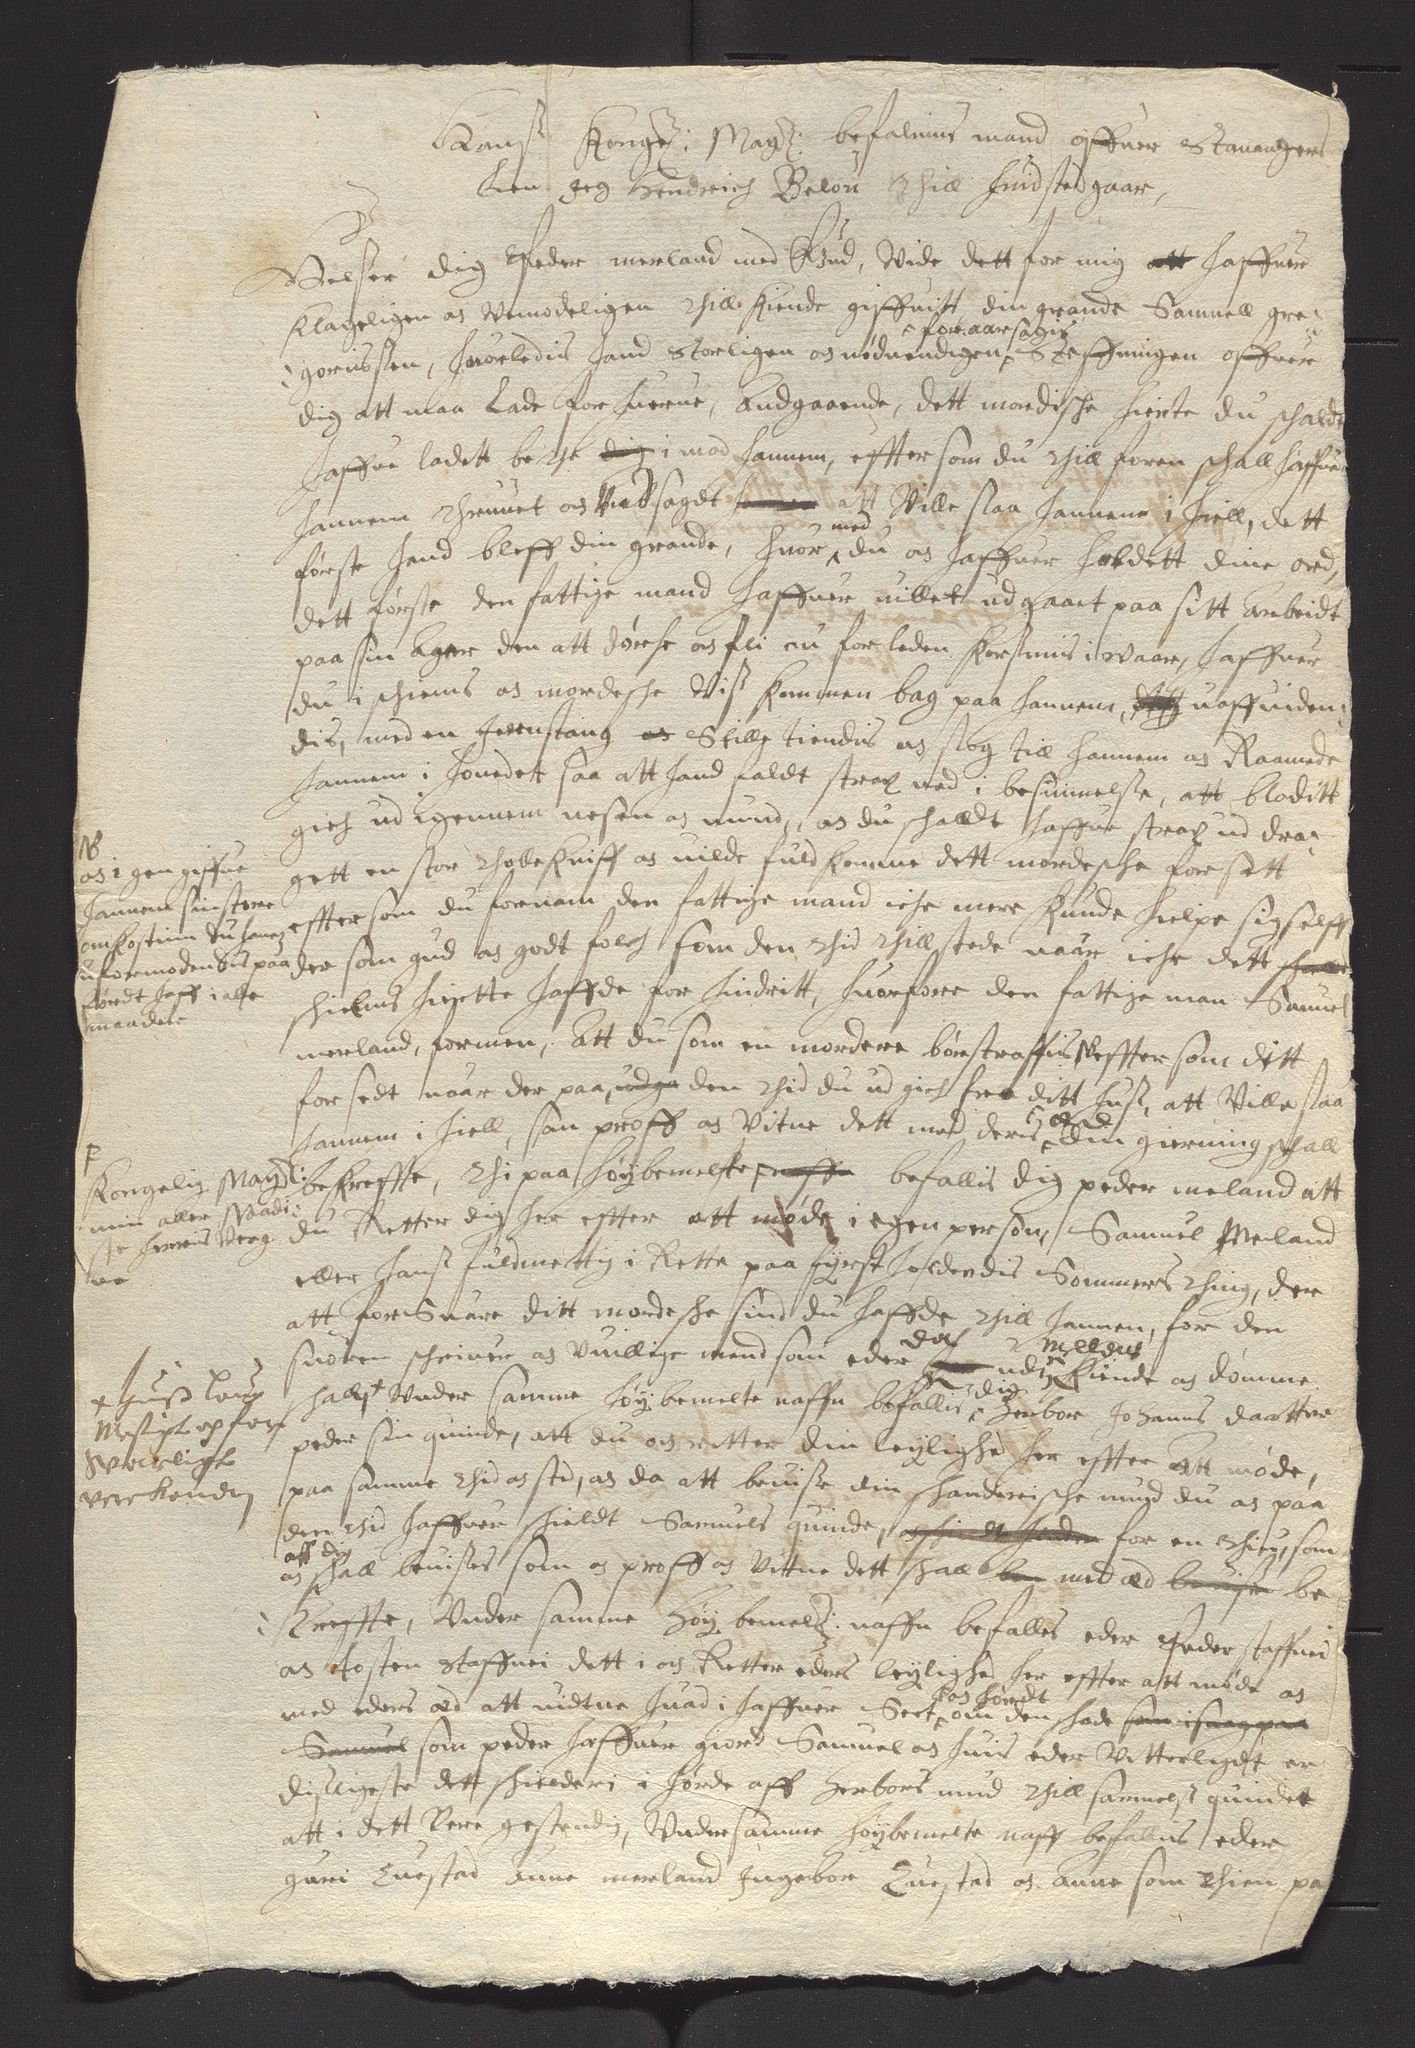 Hans Kong: May: befalnins mand offuer Stauangers
Leen Jeg Hendrich Below Thill Huidstedgaar,
Helser dig Peder merland med Gud, Vide dett for mig att haffuer
Klageligen oc Vemodeligen Thill Kiende giffuitt din grande Samuell gre-
gorussøn, huorledis hand storligen oc nøduendigen foraarsagis Steffningen offuer
dig att maa Lade forhuerue, Andgaaende, dett mordische hierte du schalde
haffue ladett be the dig imod hannem, effter som du Thill foren schall haffue
hannem Thruuet oc Vndsagdt att Ville slaa hannem i hiell, dett
første hand bleff din grande, huor med du oc haffuer holdett dine ord,
dett første den fattige mand haffuer uillet udgaaet paa sitt Arbeidt
paa sin Ager den att dørche oc fli nu forleden Korsmis i Vaar, haffuer
du i schiems oc mordesche Vis kommen bag paa hannem, uaffuiden-
dis, med en Jernstang oc stille tiendis oc slog till hannem oc Raamede
hannem i houedet saa att hand faldt strax ned i besuimelse, att bloditt
gich ud igennem nesen oc mund, oc du schulde haffue strax ud dra-
gett en stor Thollekniff oc uilde fuldkomme dett mordesche forsett
effter som du fornam den fattige mand iche mere Kunde hielpe sig selff
der som gud oc godt folch som den Thid Thillstede uaar iche dett
schielms hierte haffde forhindritt, huorfore den fattige man Samuel
merland, formen, Att du som en mordere bør straffis effter som ditt
forsedt uaar der paa, den Thid du ud gich fra ditt hus, att Ville slaa
hannem i hiell, som proff oc Vitne dett med deris æd din gierning schall
bekreffte, Thi paa høybemelte befallis dig peder meland att
du Retter dig her effter att møde i egen person, Samuel Meland
eller hans fuldmettig i Rette paa fyrst holdendis Sommers Thing, der
att forsuare ditt mordesche sind du haffde Thill hannem, for den
suoren schriuer oc Vuillige mend som eder da melldne udi Kiende oc dømme
schall, Vnder samme høybemelte naffn befallis dig Herbor Johans daatter
peder sin quinde, att du oc retter din leylighed her effter Att møde,
paa samme Thid oc sted, oc da att beuise din schenderische mund du oc paa
den Thid haffuer schieldt Samuels quinde, for en Thieu, som
oc aff dig schall beuises som oc proff oc Vittne dett schall med æd be
kreffte, Vnder samme høy bemelt: naffn befalles eder Peder staffnei
oc Tosten Staffnei dett i oc Retter eders leylighed her effter att møde oc
med eders æd att uidtne huad i haffuer Seet oc hørdt om den schade
Samuel som peder haffuer giord Samuel oc huis eder Vitterligdt er
disligeste dett schielderi i hørde aff Herbors mund Thill samuels quinde
att i dett Vere gestendig, Vnder samme høybemelte naff befallis eder
guri Tuestad Anne merland Ingebor Tuestad oc Anne som Thien pa
NB
oc igen giffue
hannem sin store
omkostning du hanem
uformodendis paa
førdt haff i alle
maader
Kongelig May:
min aller Naadi-
ste herris Veg-
ne